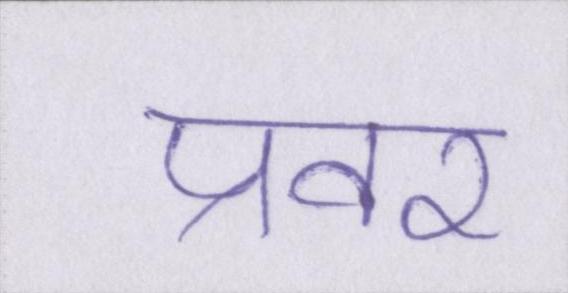 प्रवर